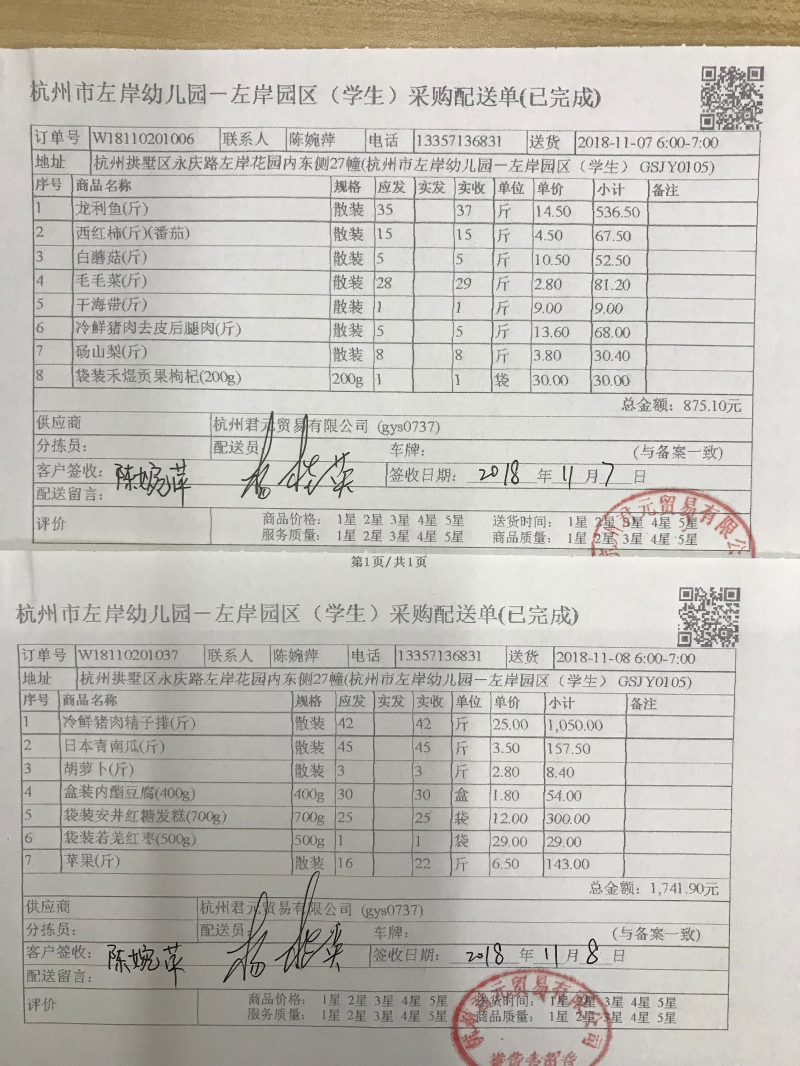 杭州市左岸幼儿园－左岸园区（学生）采购配送单(已完成)
订单号 W18110201006 联系人 陈婉萍 电话 13357136831 送货 2018-11-07 6:00-7:00
地址 杭州拱墅区永庆路左岸花园内东侧27幢(杭州市左岸幼儿园－左岸园区（学生） GSJY0105)
序号 商品名称 规格 应发 实发 实收 单位 单价 小计 备注
1 龙利鱼(斤) 散装 35 37 斤 14.50 536.50
2 西红柿(斤)(番茄) 散装 15 15 斤 4.50 67.50
3 白蘑菇(斤) 散装 5 5 斤 10.50 52.50
4 毛毛菜(斤) 散装 28 29 斤 2.80 81.20
5 干海带(斤) 散装 1 1 斤 9.00 9.00
6 冷鲜猪肉去皮后腿肉(斤) 散装 5 5 斤 13.60 68.00
7 砀山梨(斤) 散装 8 8 斤 3.80 30.40
8 袋装禾煜贡果枸杞(200g) 200g 1 1 袋 30.00 30.00
总金额：875.10元
供应商 杭州君元贸易有限公司 (gys0737)
分拣员： 配送员 车牌： (与备案一致)
客户签收： 陈婉萍 签收日期： 2018 年 11 月 7 日
配送留言：
评价 商品价格： 1星 2星 3星 4星 5星 送货时间： 1星 2星 3星 4星 5星
服务质量： 1星 2星 3星 4星 5星 商品质量： 1星 2星 3星 4星 5星
君元贸易有限公
第1页/共1页
杭州市左岸幼儿园－左岸园区（学生）采购配送单(已完成)
订单号 W18110201037 联系人 陈婉萍 电话 13357136831 送货 2018-11-08 6:00-7:00
地址 杭州拱墅区永庆路左岸花园内东侧27幢(杭州市左岸幼儿园－左岸园区（学生） GSJY0105)
序号 商品名称 规格 应发 实发 实收 单位 单价 小计 备注
1 冷鲜猪肉精子排(斤) 散装 42 42 斤 25.00 1,050.00
2 日本青南瓜(斤) 散装 45 45 斤 3.50 157.50
3 胡萝卜(斤) 散装 3 3 斤 2.80 8.40
4 盒装内酯豆腐(400g) 400g 30 30 盒 1.80 54.00
5 袋装安井红糖发糕(700g) 700g 25 25 袋 12.00 300.00
6 袋装若羌红枣(500g) 500g 1 1 袋 29.00 29.00
7 苹果(斤) 散装 16 22 斤 6.50 143.00
总金额：1,741.90元
供应商 杭州君元贸易有限公司 (gys0737)
分拣员： 配送员 车牌： (与备案一致)
客户签收： 陈婉萍 签收日期： 2018 年 11 月 8 日
配送留言：
评价 商品价格： 1星 2星 3星 4星 5星 送货时间： 1星 2星 3星 4星 5星
服务质量： 1星 2星 3星 4星 5星 商品质量： 1星 2星 3星 4星 5星
杭州君元贸易有限公司